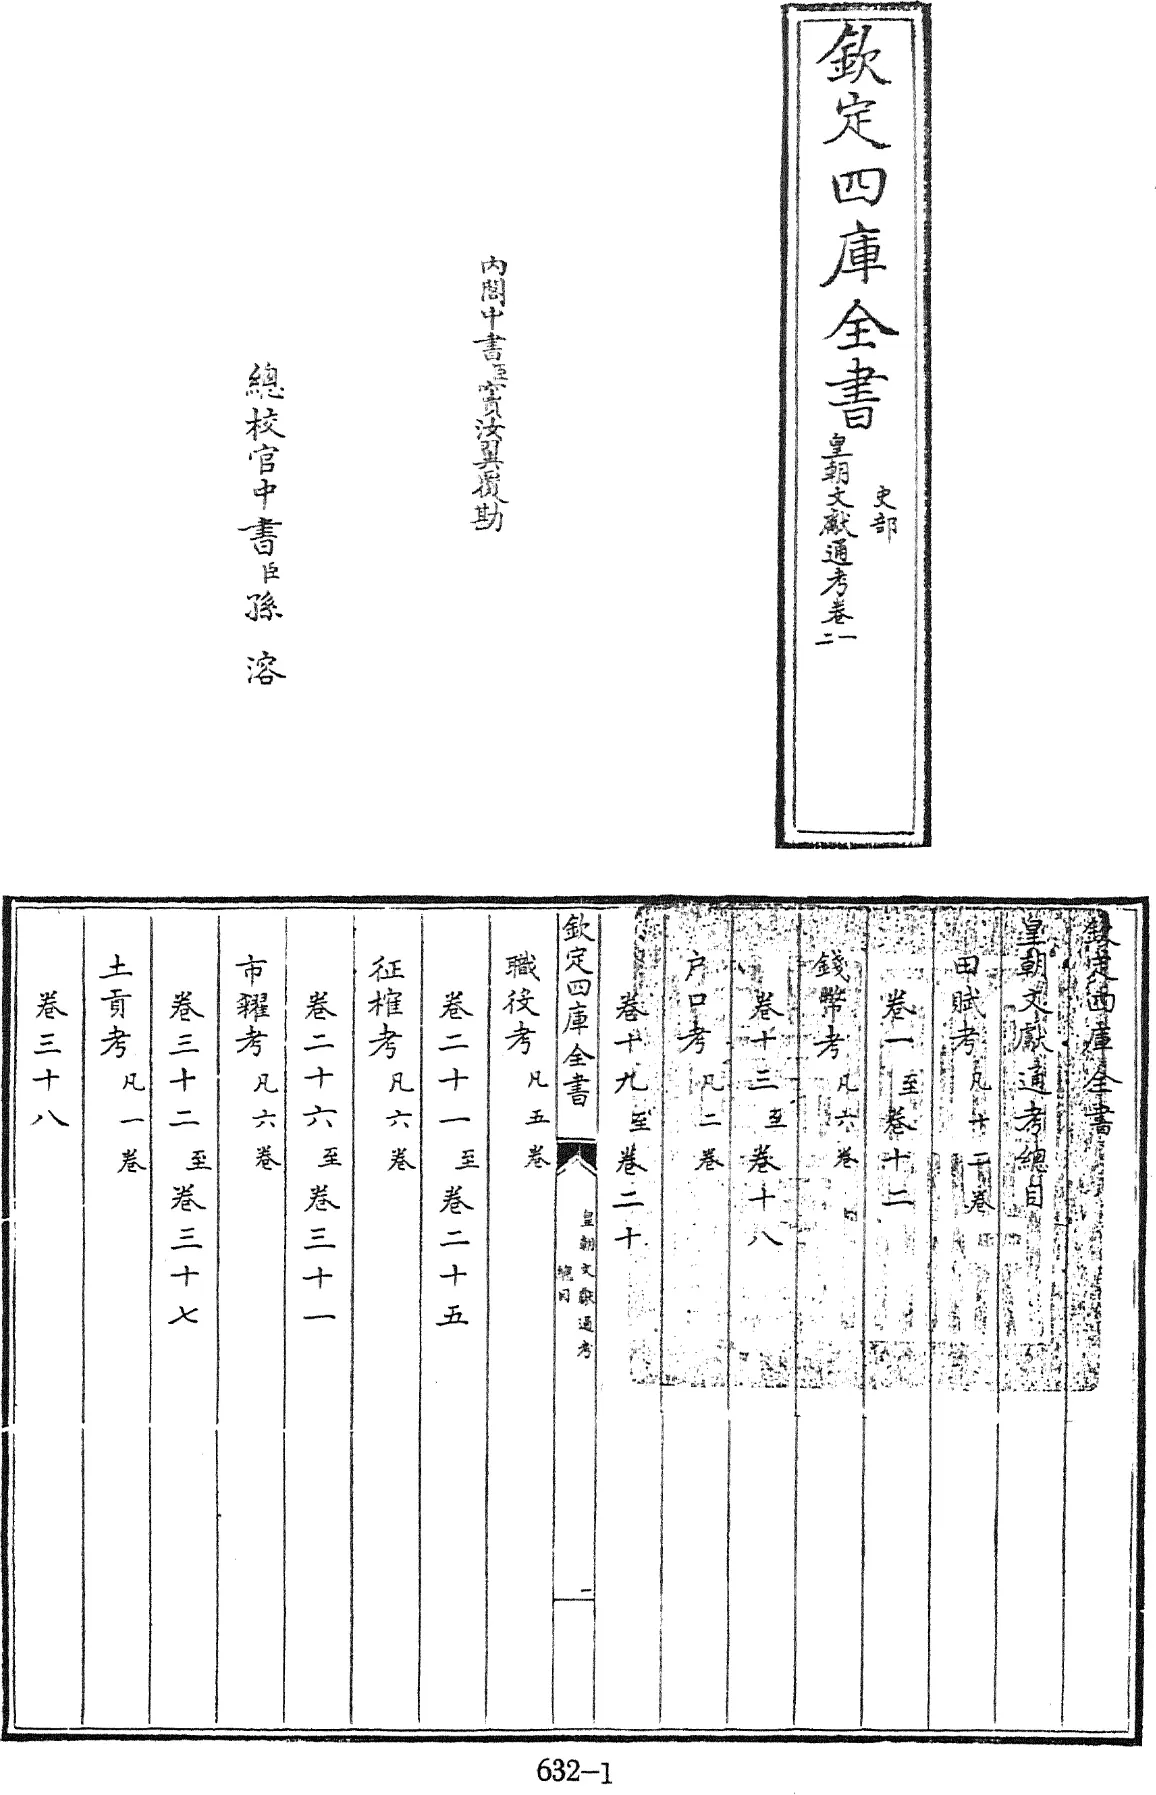 欽定四庫全書
史部
皇朝文獻通考卷一
二
內閣中書臣竇汝翼覆勘
總校官中書臣孫溶
欽定四庫全書
皇朝文獻通考總目
田賦考凡十二卷
卷一至卷十二
錢幣考凡六卷
卷十三至卷十八
戶口考凡二卷
卷十九至卷二十
欽定四庫全書
皇朝文獻通考
總目
二
職役考凡五卷
卷二十一至卷二十五
征榷考凡六卷
卷二十六至卷三十一
市糴考凡六卷
卷三十二至卷三十七
土貢考凡一卷
卷三十八
632-1